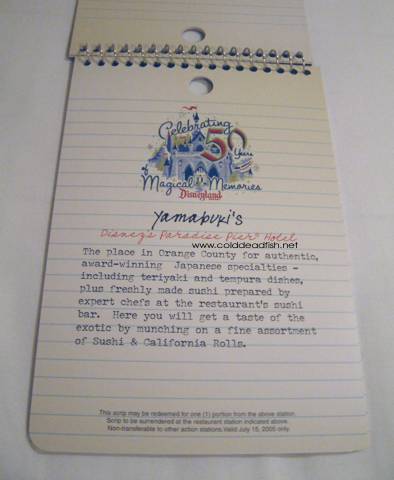 Celebrating
50 Years
of Magical Memories
Disneyland
Yamabuki's
Disney's Paradise Pier® Hotel
www.colddeadfish.net
The place in Orange County for authentic,
award-winning Japanese specialties -
including teriyaki and tempura dishes,
plus freshly made sushi prepared by
expert chefs at the restaurant's sushi
bar. Here you will get a taste of the
exotic by munching on a fine assortment
of Sushi & California Rolls.
This scrip may be redeemed for one (1) portion from the above station.
Scrip to be surrendered at the restaurant station indicated above.
Non-transferable to other action stations. Valid July 15, 2005 only.